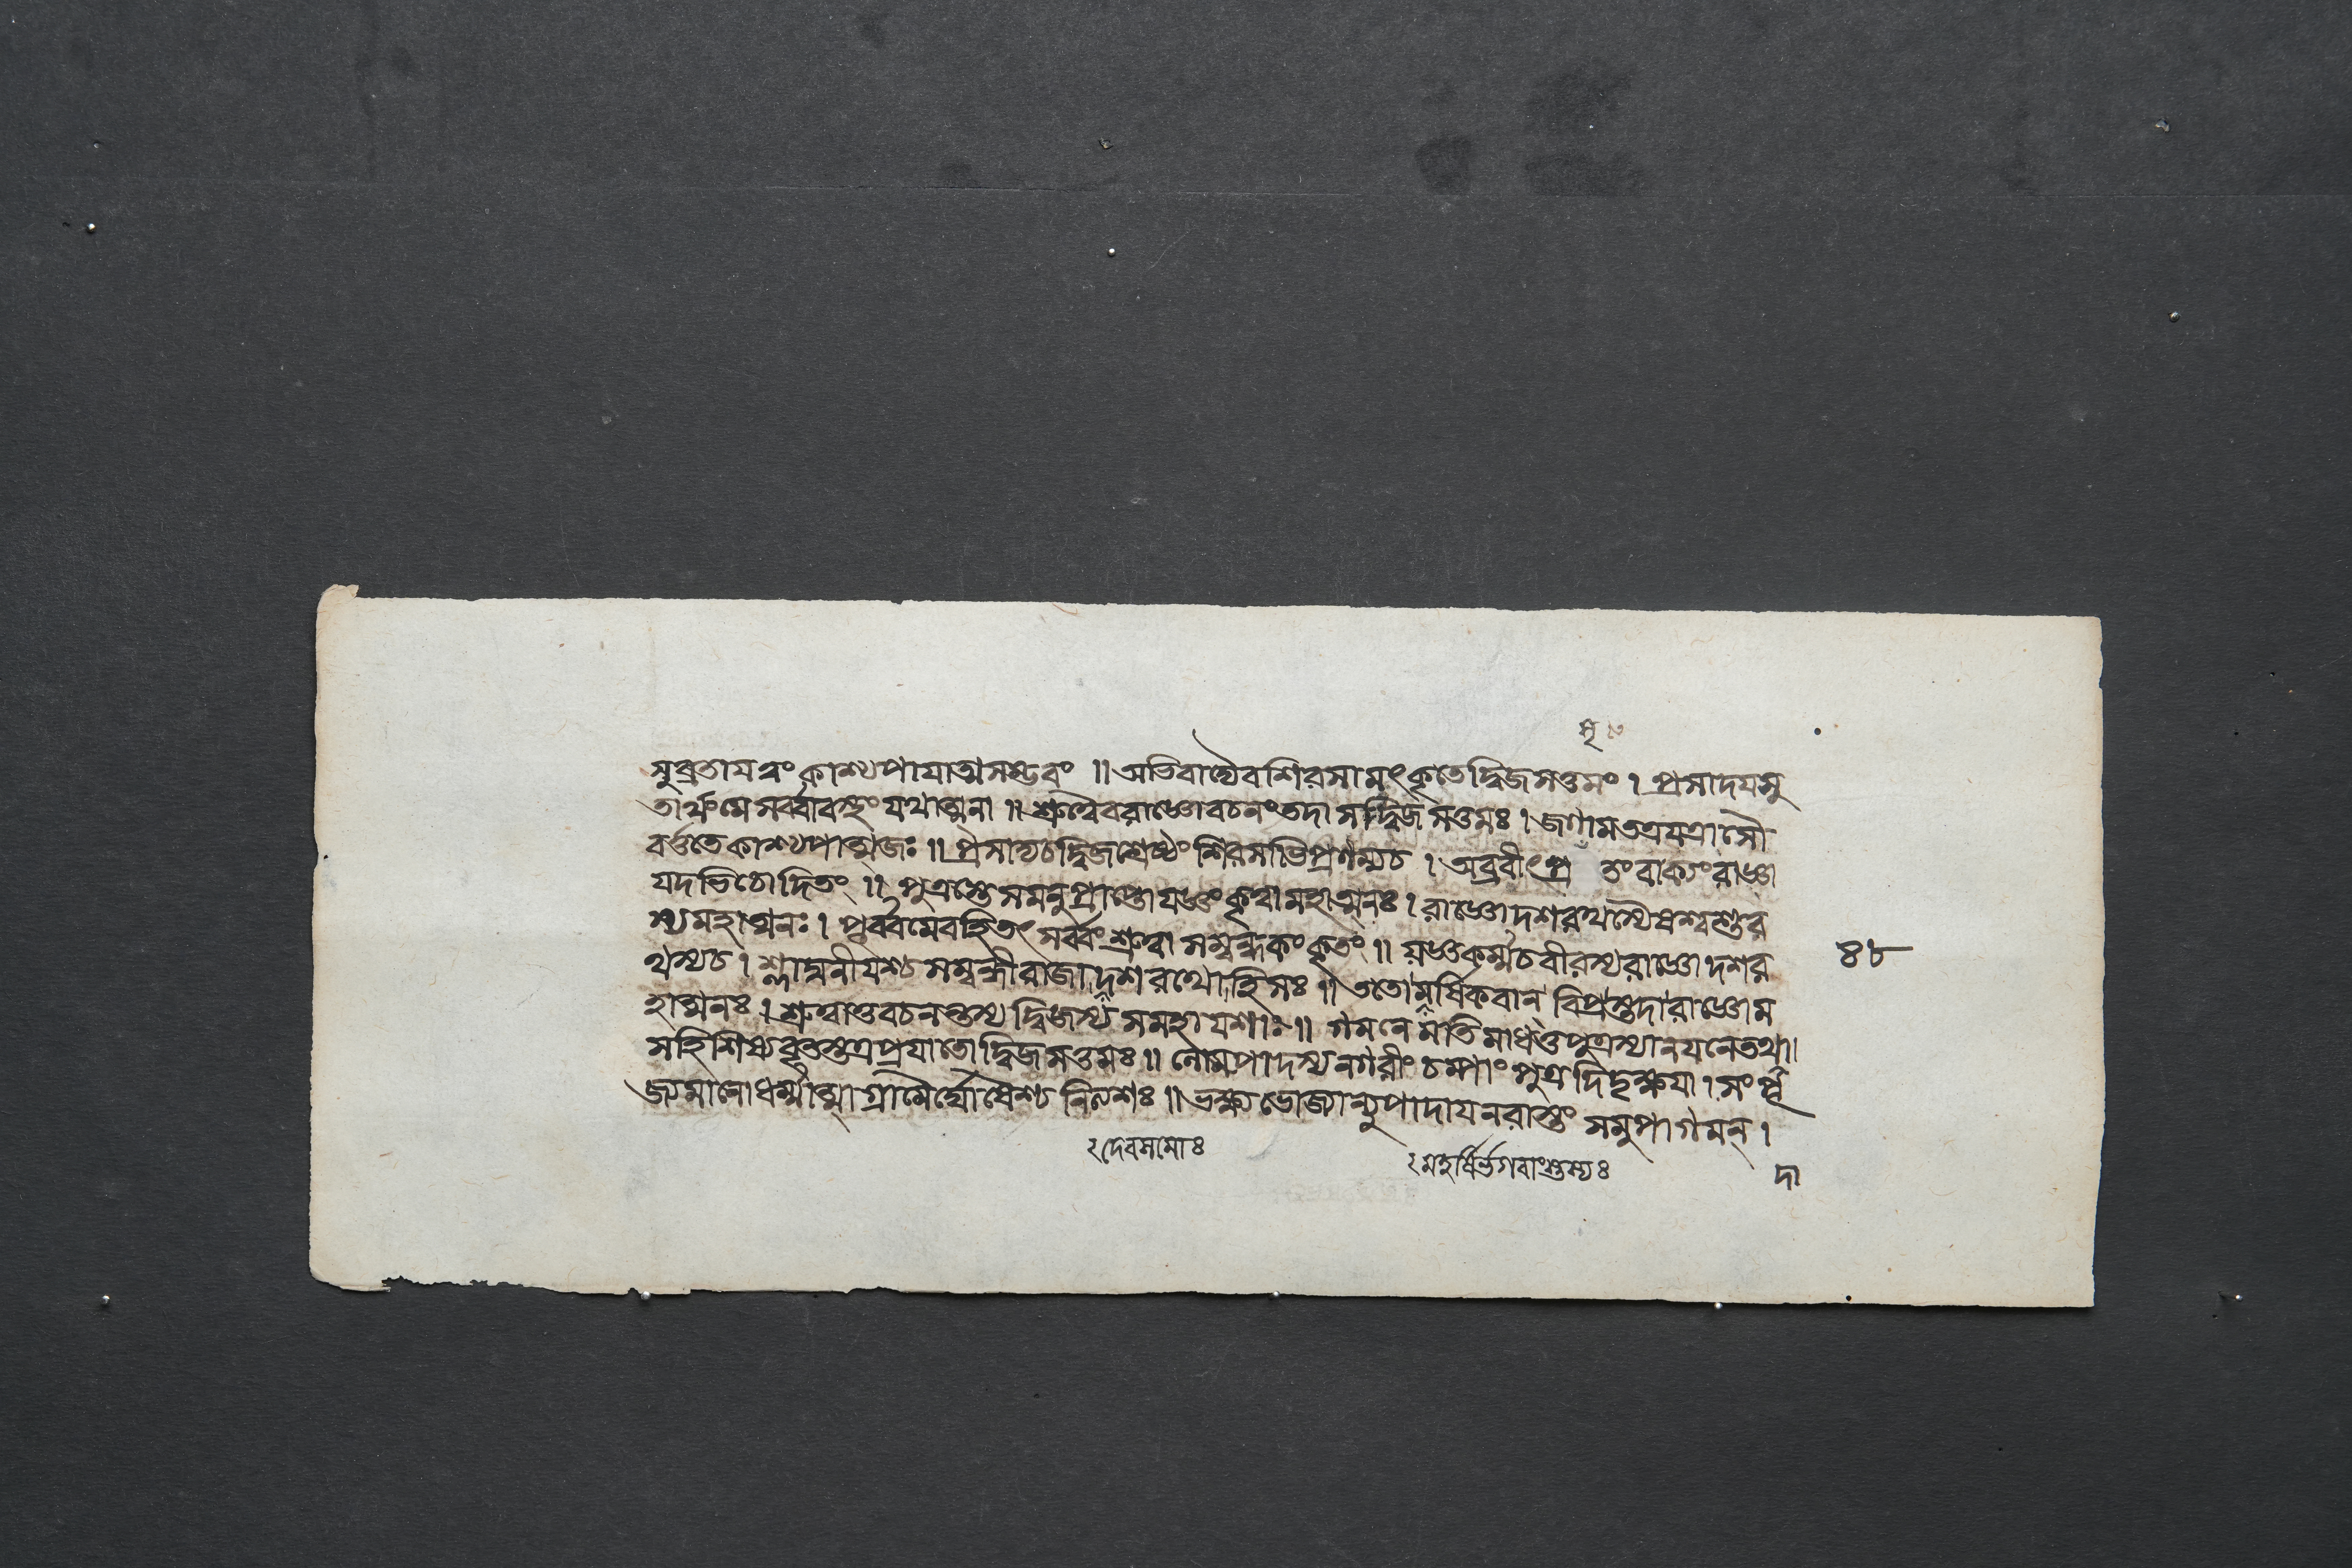 সৃ
সুব্রতাযত্বং কাশ্যপাযাত্মসম্ভবং ॥ অভিবাদ্যৈবশিরসামৎকৃতেদ্বিজসত্তমং । প্রসাদযসু
তার্থংমেসর্ব্বাবস্থংযথাত্মনা ॥ শ্রুত্বৈবরাজ্ঞোবচনংতদা সদ্বিজসত্তমঃ । জগামতত্রযত্রাসৌ
বর্ত্ততেকাশ্যপাত্মজঃ ॥ প্রসাদ্যচদ্বিজশ্রেষ্ঠং শিরসাভিপ্রণম্যচ । অব্রবীৎপ্র তংবাক্যংরাজ্ঞা
যদভিচোদিতং ॥ পুত্রস্তেসমনুপ্রাপ্তোযজ্ঞংকৃত্বামহাত্মনঃ । রাজ্ঞোদশরথস্যৈষশ্বশুর
স্যমহাত্মনঃ । পূর্ব্বমেবহিতৎ সর্ব্বংশ্রুত্বা সম্বন্ধকংকৃতং ॥ যজ্ঞকর্ম্মচবীরস্যরাজ্ঞোদশর
থস্যচ । শ্লাঘনীযশ্চসম্বন্ধীরাজাদশরথোহিসঃ ॥ ততোমর্ষিকবান্ বিপ্রস্তদারাজ্ঞোম
হাত্মনঃ । শ্রুত্বাতুবচনন্তস্য দ্বিজস্য সমহাযশাঃ ॥ গমনে মতিমাধত্তপুত্রস্যানযনেতথা॥
সহিশিষ্যবৃতস্তত্রপ্রযাতোদ্বিজসত্তমঃ ॥ লোমপাদস্যনগরীং চম্পাং পুত্রদিদৃক্ষযা । সংপূ
জ্যমানোধর্ম্মাত্মাগ্রামৈর্ঘোষৈশ্চ নিত্যশঃ ॥ ভক্ষ্যভোজ্যান্যুপাদাযনরাস্তং সমুপাগমন্ ।
৪৮
২দেবসমোঃ
২মহর্ষির্ভগবাংস্তস্যঃ
দা